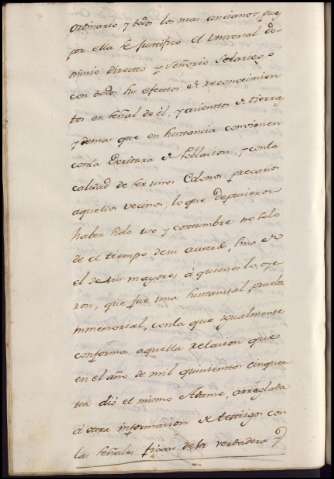 ordinario y todos los mas ancianos, que
por ella se justificó el Universal do-
minio directo y señorio Solariego
con todos sus efectos de reconocimien-
tos en señal de él, y asientos de tierra
y demas que en sustancia convienen
con la Escritura de Poblacion, y con la
calidad de ser unos Colonos precarios
aquellos vecinos, lo que depusieron
haber sido uso y costumbre no solo
de el tiempo de su acuerdo, sino de
el de sus mayores á quienes lo oye-
ron, que fue una sustancial prueba
immemorial, con la que igualmente
conforma aquella relacion que
en el año de mil quinientos cinquen
ta dió el mismo Adame, arreglada
á otra informacion de testigos con
las señales fixas de la verdadera